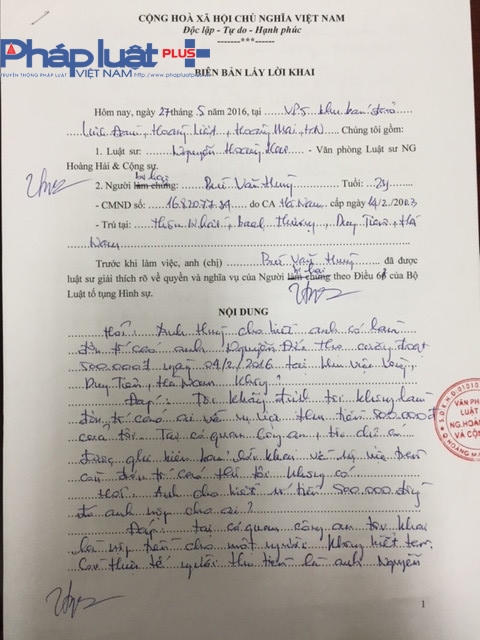 CỘNG HOÀ XÃ HỘI CHỦ NGHĨA VIỆT NAM
Độc lập - Tự do - Hạnh phúc
-------***------
Pháp luật PLUS
TRUYỀN THÔNG PHÁP LUẬT VIỆT NAM http://phapluatplus.vn
BIÊN BẢN LẤY LỜI KHAI
Hôm nay, ngày 27 tháng 5 năm 2016, tại VP5 khu bán đảo
Linh Đàm, Hoàng Liệt, Hoàng Mai, HN Chúng tôi gồm:
1. Luật sư: Nguyễn Hoàng - Văn phòng Luật sư NG
Hoàng Hải & Cộng sự.
bị hại
2. Người làm chứng: Bùi Văn Hưng Tuổi:
- CMND số: do CA Hà Nam cấp ngày 14/2/2003
- Trú tại: thôn Duy Tiên, Hà
Nam
Trước khi làm việc, anh (chị) Bùi Văn Hưng đã được
bị hại
luật sư giải thích rõ về quyền và nghĩa vụ của Người làm chứng theo Điều của Bộ
Luật tố tụng Hình sự.
NỘI DUNG
Hỏi: Anh Hưng cho biết anh có làm
đơn tố cáo anh Nguyễn Đức cưỡng đoạt
500.000đ ngày 04/2/2016 tại
Duy Tiên, Hà Nam không?
Đáp: Tôi khẳng định tôi không làm
đơn tố cáo ai về vụ việc thu tiền 500.000đ
của tôi. Tại cơ quan công an, tôi chỉ có
được ghi biên bản lời khai về sự việc trên
còn đơn tố cáo thì tôi không có
Hỏi: Anh cho biết số tiền 500.000 đồng
đó anh nộp cho ai?
Đáp: Tại cơ quan công an tôi khai
là nộp tiền cho một người không biết tên.
Còn thực tế người thu tiền là anh Nguyễn
VĂN PHÒNG
LUẬT
NG.HOÀNG
VÀ CỘNG
1